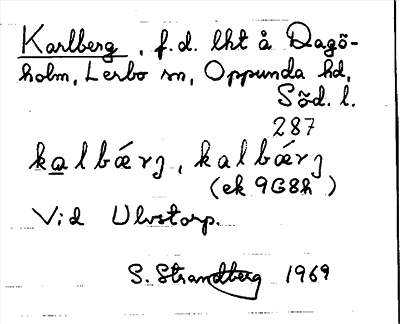 Karlberg, f.d. lht å Dagö-
holm, Lerbo sn, Oppunda hd,
Söd. l.
287
kalbǽrj, kalbǽrj
(ek 9G8h)
Vid Ulvstorp.
S. Strandberg 1969